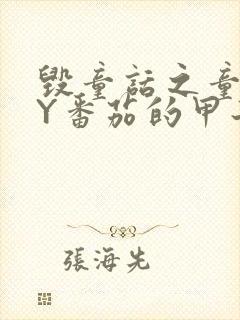 毁童话之童
Y番茄的甲
張海先